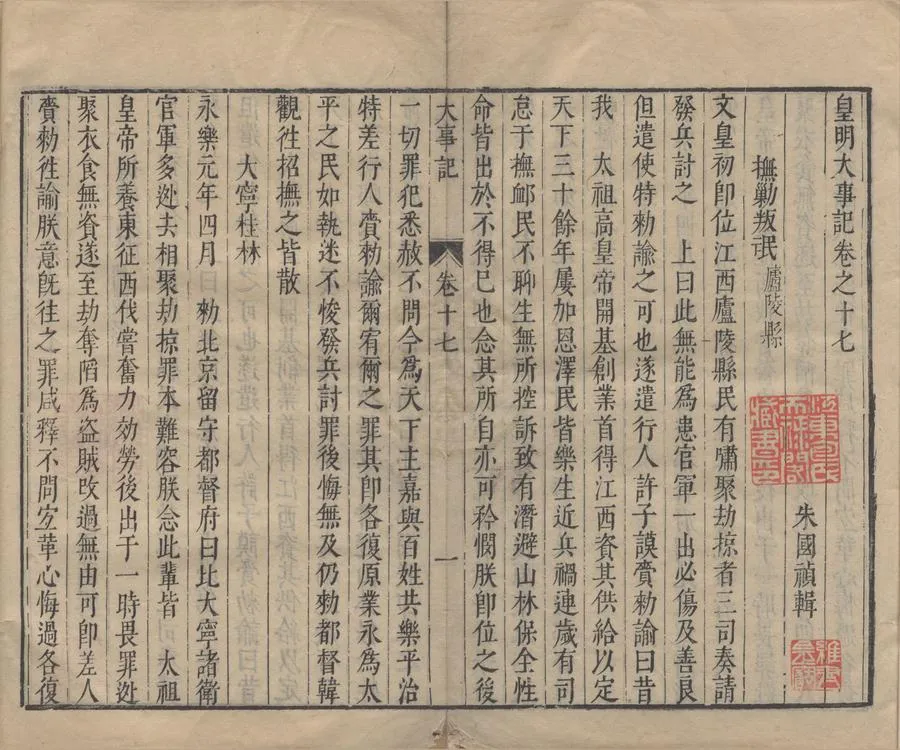 皇明大事記卷之十七
朱國禎輯
撫勦叛民 廬陵縣
文皇初卽位江西廬陵縣民有嘯聚劫掠者三司奏請
發兵討之 上曰此無能為患官軍一出必傷及善良
但遣使特勅諭之可也遂遣行人許子謨賫勅諭曰昔
我 太祖高皇帝開基創業首得江西資其供給以定
天下三十餘年屢加恩澤民皆樂生近兵禍連歲有司
怠于撫䘏民不聊生無所控訴致有潛避山林保全性
命皆出於不得已也念其所自亦可矜憫朕卽位之後
大事記 卷十七 一
一切罪犯悉赦不問今為天下主嘉與百姓共樂平治
特差行人賫勅諭爾宥爾之罪其卽各復原業永為太
平之民如執迷不悛發兵討罪後悔無及仍勅都督韓
觀徃招撫之皆散
大寧桂林
永樂元年四月 勅北京留守都督府曰比大寧諸衛
官軍多逃去相聚劫掠罪本難容朕念此輩皆 太祖
皇帝所養東征西伐嘗奮力効勞後出于一時畏罪逃
聚衣食無資遂至劫奪陷為盗賊改過無由可卽差人
賫勅徃諭朕意旣往之罪咸釋不問宐革心悔過各復